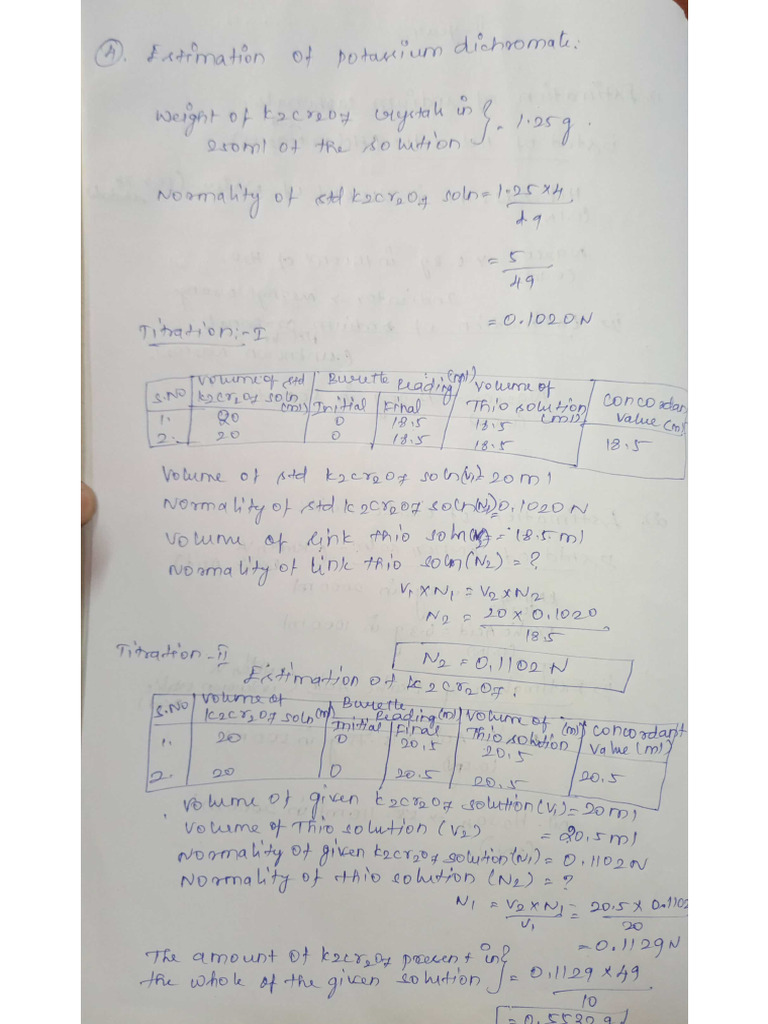 4. Estimation of potassium dichromate:
Weight of K2Cr2O7 crystals in
250ml of the solution } = 1.25g.
Normality of std K2Cr2O7 soln = 1.25 × 4 / 49
= 5 / 49
= 0.1020N
Titration:-I
S.NO | Volume of std K2Cr2O7 soln (ml) | Burette reading (ml) Initial | Final | Volume of Thio solution (ml) | Concordant value (ml)
1. | 20 | 0 | 18.5 | 18.5 |
2. | 20 | 0 | 18.5 | 18.5 | 18.5
Volume of std K2Cr2O7 soln (V1) = 20ml
Normality of std K2Cr2O7 soln (N1) = 0.1020N
Volume of link thio soln = 18.5ml
Normality of link thio soln (N2) = ?
V1 × N1 = V2 × N2
N2 = 20 × 0.1020 / 18.5
Titration-II
N2 = 0.1102 N
Estimation of K2Cr2O7:
S.NO | Volume of K2Cr2O7 soln (ml) | Burette reading (ml) Initial | Final | Volume of Thio solution (ml) | Concordant value (ml)
1. | 20 | 0 | 20.5 | 20.5 |
2. | 20 | 0 | 20.5 | 20.5 | 20.5
Volume of given K2Cr2O7 solution (V1) = 20ml
Volume of Thio solution (V2) = 20.5ml
Normality of given K2Cr2O7 solution (N1) = 0.1102N
Normality of thio solution (N2) = ?
N1 = V2 × N1 / V1 = 20.5 × 0.1102 / 20
= 0.1129N
The amount of K2Cr2O7 present in
the whole of the given solution } = 0.1129 × 49 / 10
= 0.5530g